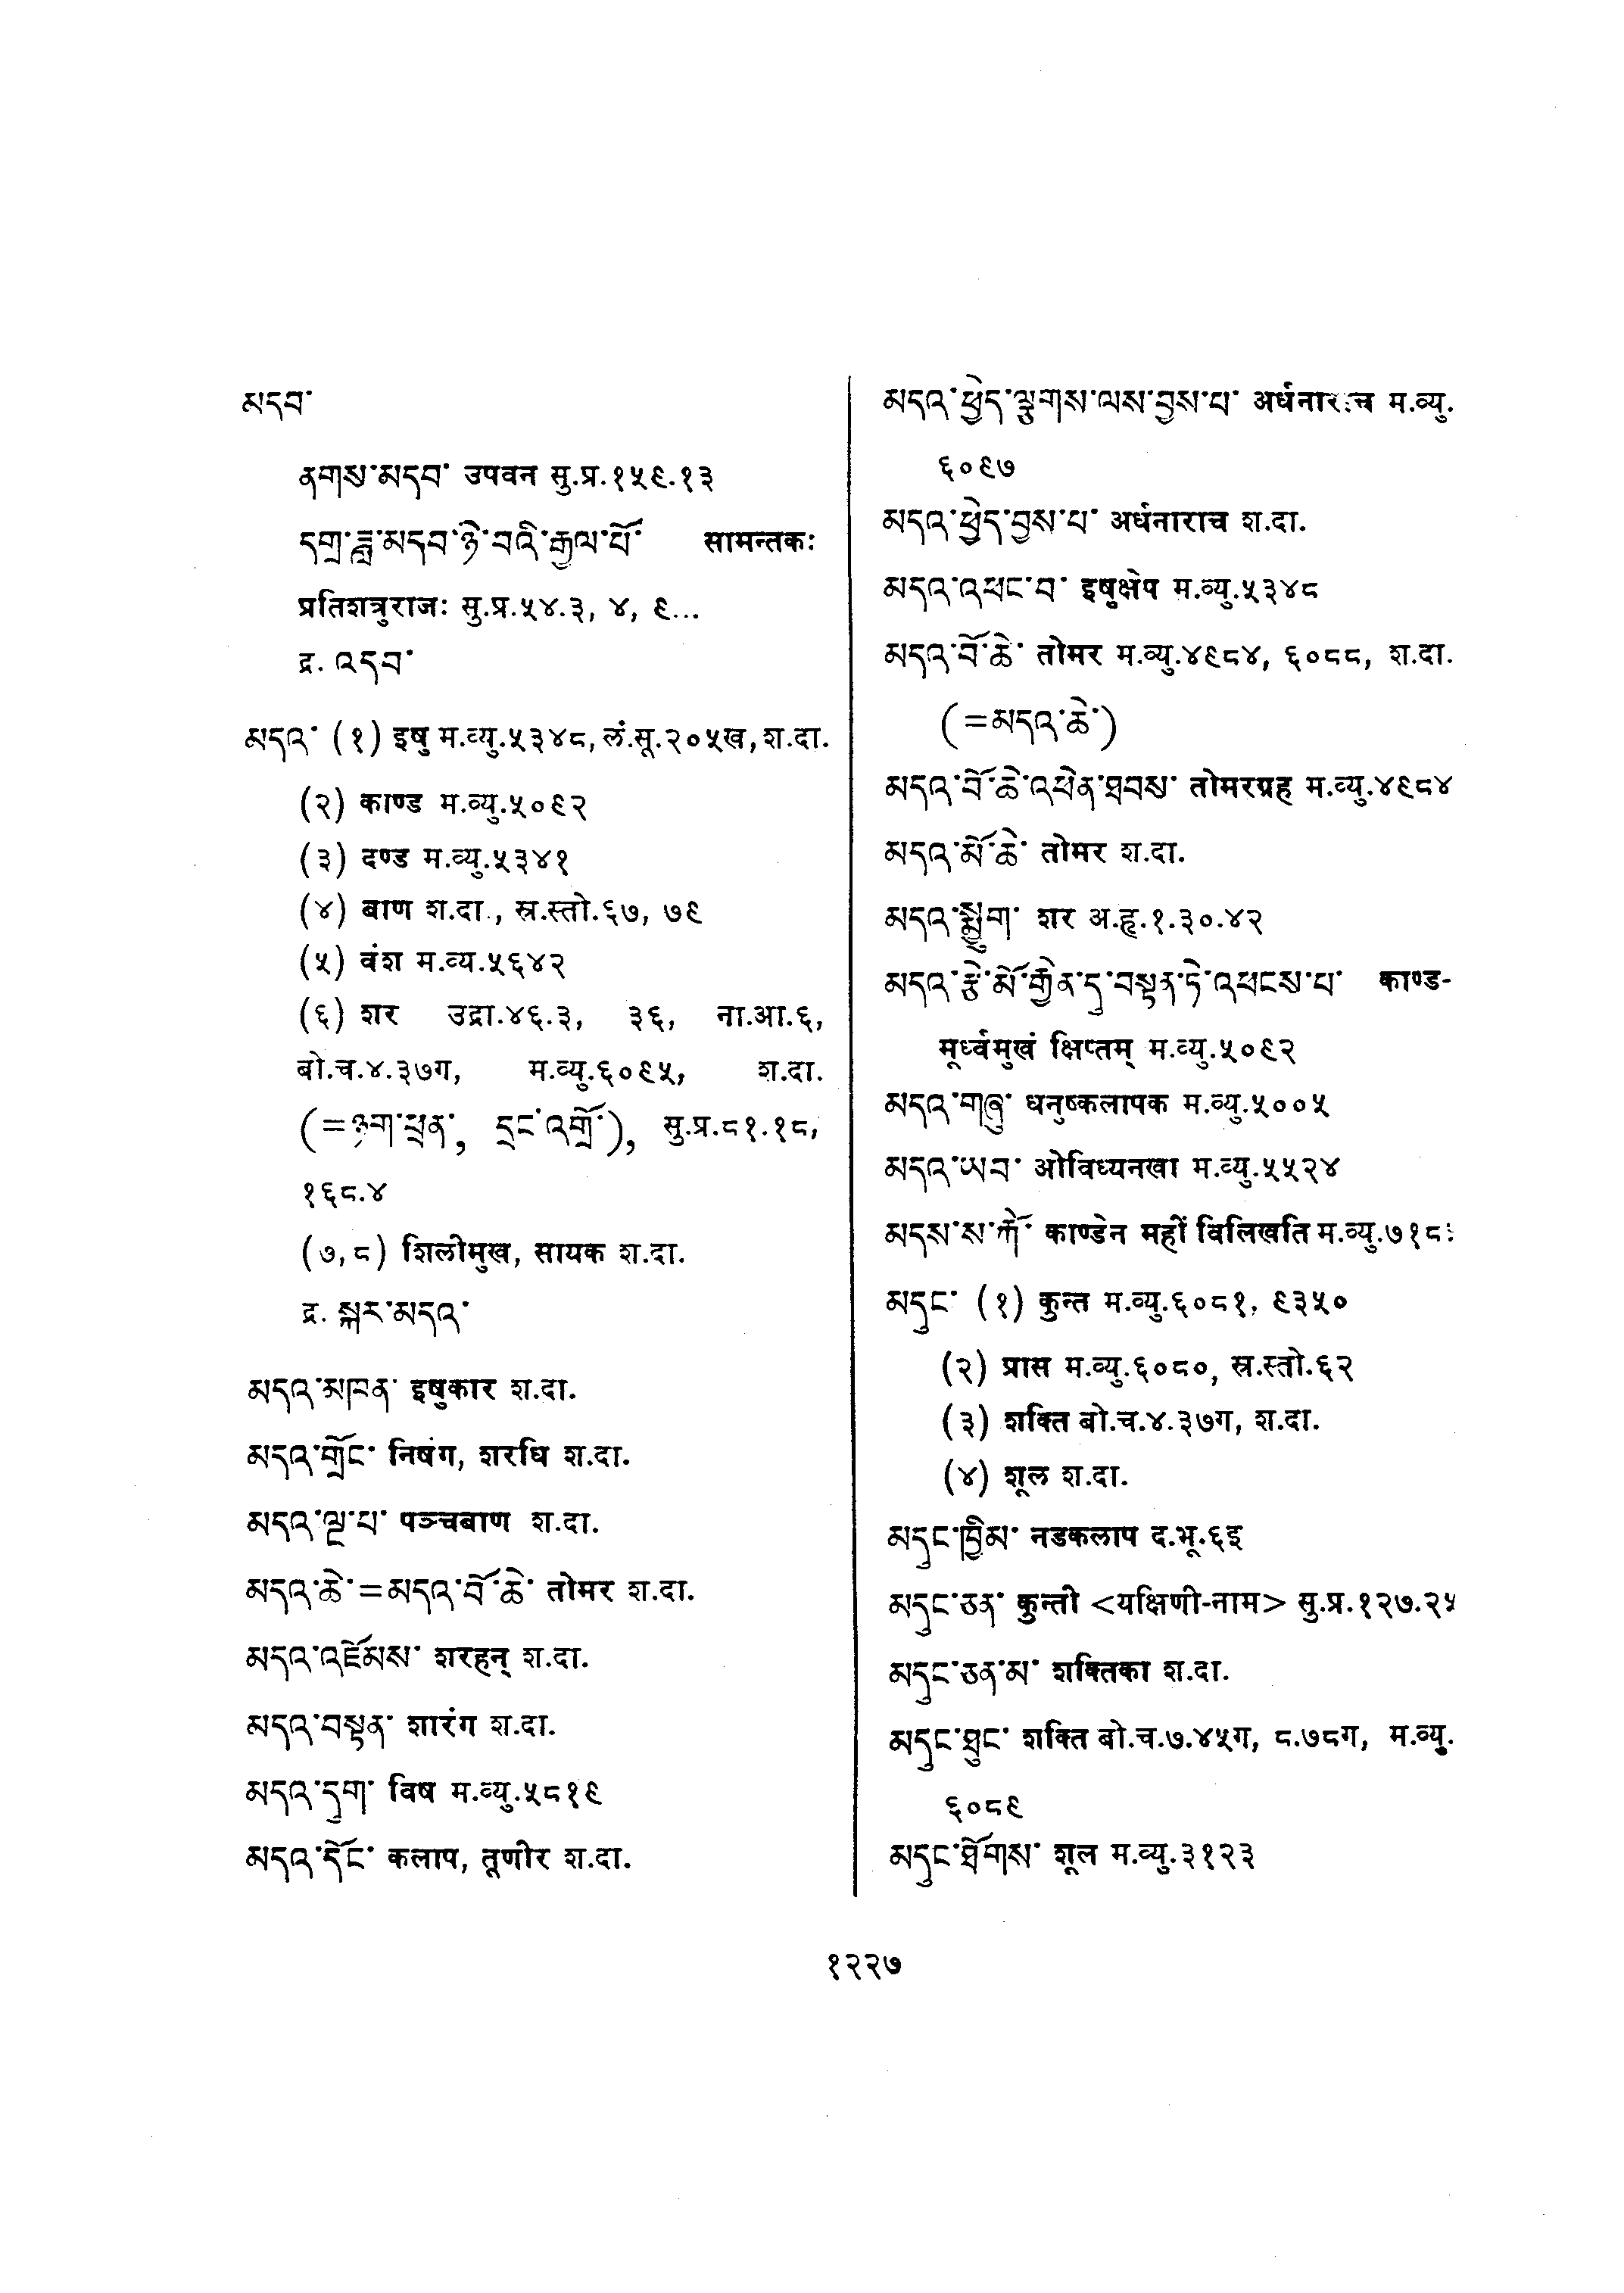 མདབ་
ནགས་མདབ་ उपवन सु.प्र.१५९.१३
དགྲ་ཟླ་མདབ་ཉེ་བའི་རྒྱལ་པོ་ सामन्तकः
प्रतिशत्रुराजः सु.प्र.५४.३, ४, ९...
द्र. འདབ་
མདའ་ (१) इषु म.व्यु.५३४८, लं.सू.२०५ख, श.दा.
(२) काण्ड म.व्यु.५०९२
(३) दण्ड म.व्यु.५३४१
(४) बाण श.दा., स्र.स्तो.६७, ७९
(५) वंश म.व्य.५६४२
(६) शर उद्रा.४६.३, ३६, ना.आ.६,
बो.च.४.३७ग, म.व्यु.६०९५, श.दा.
(=ཉག་ཕྲན་, དྲང་འགྲོ་), सु.प्र.८१.१८,
१६८.४
(७,८) शिलीमुख, सायक श.दा.
द्र. སྐར་མདའ་
མདའ་མཁན་ इषुकार श.दा.
མདའ་གྲོང་ निषंग, शरधि श.दा.
མདའ་ལྔ་པ་ पञ्चबाण श.दा.
མདའ་ཆེ་=མདའ་བོ་ཆེ་ तोमर श.दा.
མདའ་འཇོམས་ शरहन् श.दा.
མདའ་བསྟན་ शारंग श.दा.
མདའ་དུག་ विष म.व्यु.५८१९
མདའ་དོང་ कलाप, तूणीर श.दा.
མདའ་ཕྱེད་ལྕགས་ལས་བྱས་པ་ अर्धनाराच म.व्यु.
६०९७
མདའ་ཕྱེད་བྱས་པ་ अर्धनाराच श.दा.
མདའ་འཕང་བ་ इषुक्षेप म.व्यु.५३४८
མདའ་བོ་ཆེ་ तोमर म.व्यु.४९८४, ६०८८, श.दा.
(=མདའ་ཆེ་)
མདའ་བོ་ཆེ་འཕེན་ཐབས་ तोमरग्रह म.व्यु.४९८४
མདའ་མོ་ཆེ་ तोमर श.दा.
མདའ་སྨྱུག་ शर अ.हृ.१.३०.४२
མདའ་རྩེ་མོ་གྱེན་དུ་བསྟན་ཏེ་འཕངས་པ་ काण्ड-
मूर्ध्वमुखं क्षिप्तम् म.व्यु.५०९२
མདའ་གཞུ་ धनुष्कलापक म.व्यु.५००५
མདའ་ཡབ་ ओविध्यनखा म.व्यु.५५२४
མདས་ས་རྐོ་ काण्डेन महीं विलिखति म.व्यु.७१८
མདུང་ (१) कुन्त म.व्यु.६०८१, ९३५०
(२) प्रास म.व्यु.६०८०, स्र.स्तो.६२
(३) शक्ति बो.च.४.३७ग, श.दा.
(४) शूल श.दा.
མདུང་ཁྱིམ་ नडकलाप द.भू.६इ
མདུང་ཅན་ कुन्ती <यक्षिणी-नाम> सु.प्र.१२७.२५
མདུང་ཅན་མ་ शक्तिका श.दा.
མདུང་ཐུང་ शक्ति बो.च.७.४५ग, ८.७८ग, म.व्यु.
६०८९
མདུང་ཐོགས་ शूल म.व्यु.३१२३
१२२७